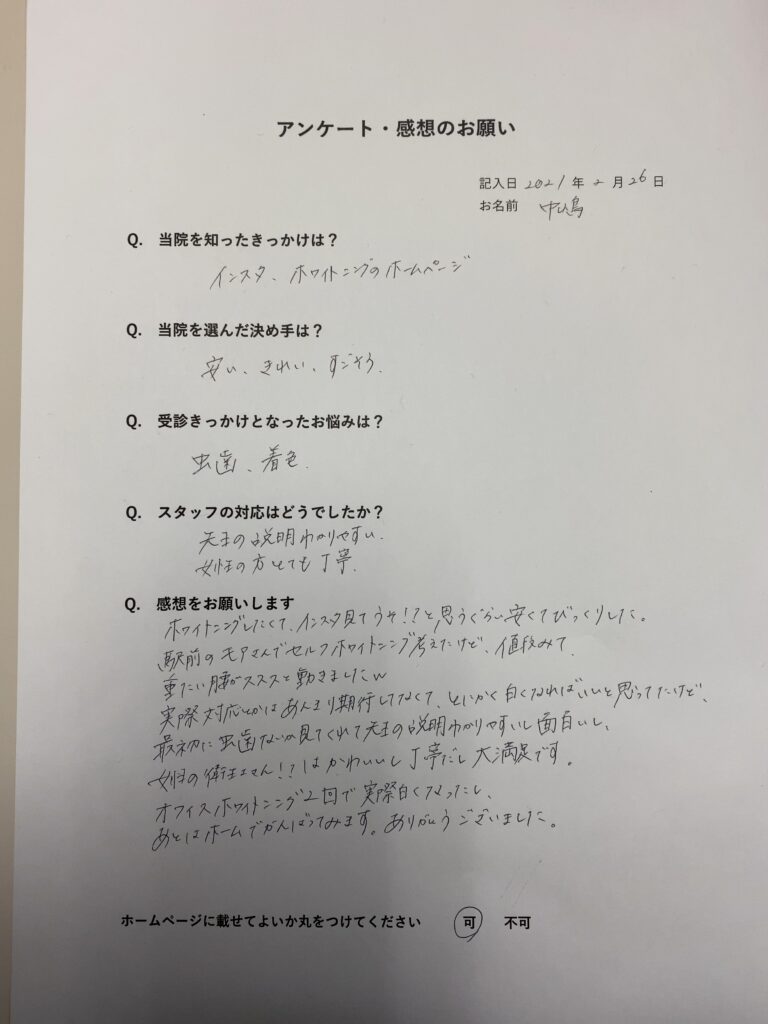 アンケート・感想のお願い
記入日 2021年 2月26日
お名前
Q. 当院を知ったきっかけは？
インスタ、ホワイトニングのホームページ
Q. 当院を選んだ決め手は？
安い、きれい、すごそう.
Q. 受診きっかけとなったお悩みは？
虫歯、着色.
Q. スタッフの対応はどうでしたか？
先生の説明わかりやすい.
女性の方とても丁寧.
Q. 感想をお願いします
ホワイトニングしたくて、インスタ見てうそ!?と思うぐらい安くてびっくりした。
駅前のモアさんでセルフホワイトニング考えたけど、値段みて
重たい腰がスススと動きましたw
実際対応とかはあんまり期待してなくて、とにかく白くなればいいと思ってたけど、
最初に虫歯ないか見てくれて先生の説明わかりやすいし面白いし、
女性の衛生士さん!?はかわいいし丁寧だし大満足です。
オフィスホワイトニング2回で実際白くなったし、
あとはホームでがんばってみます。ありがとうございました。
ホームページに載せてよいか丸をつけてください 可 不可